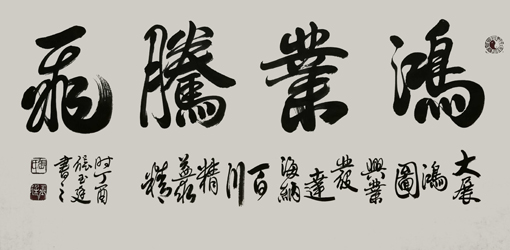 鴻業騰飛
大展鴻圖興業發達海納百川精益求精
时丁酉
書之